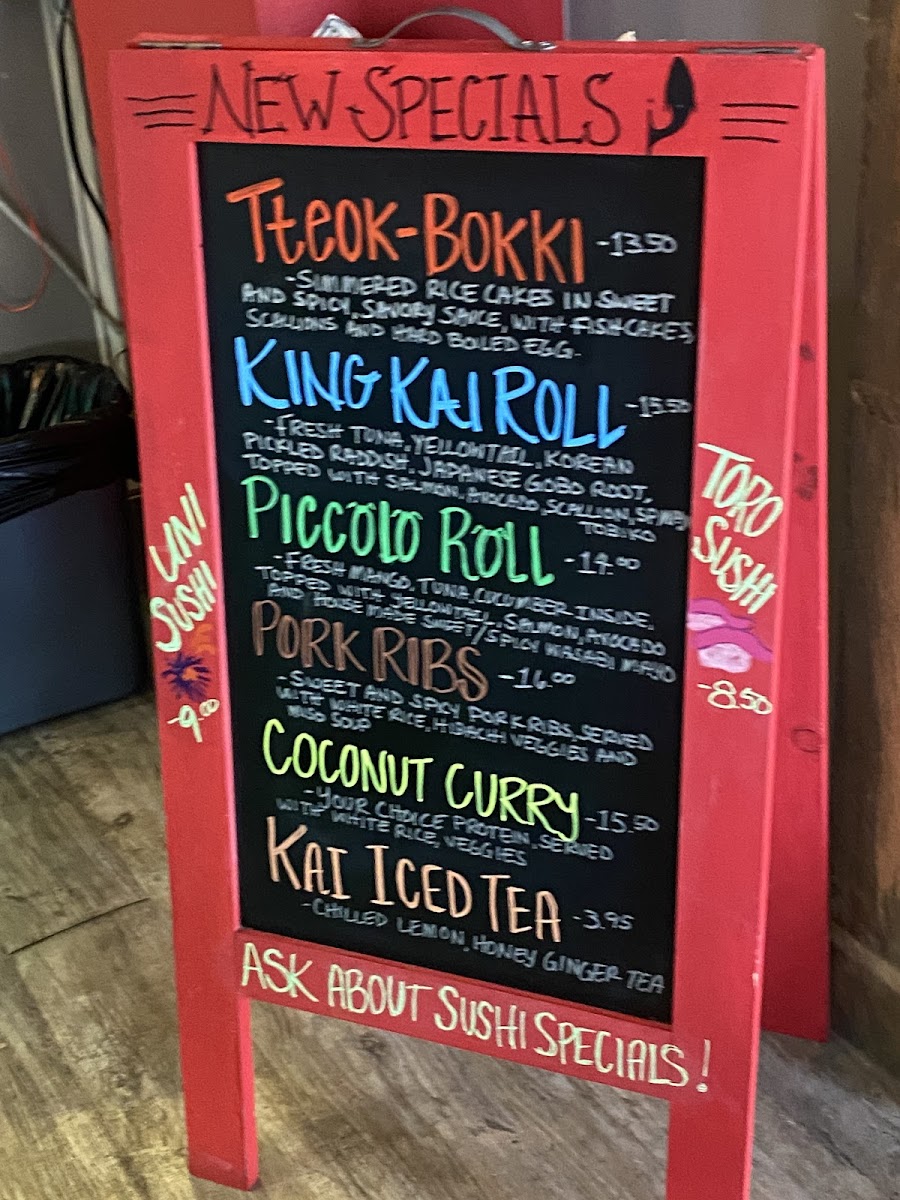 NEW SPECIALS
TTEOK-BOKKI -13.50
-SIMMERED RICE CAKES IN SWEET
AND SPICY, SAVORY SAUCE, WITH FISHCAKES,
SCALLIONS AND HARD BOILED EGG.
KING KAI ROLL -15.50
-FRESH TUNA, YELLOWTAIL, KOREAN
PICKLED RADDISH, JAPANESE GOBO ROOT,
TOPPED WITH SALMON, AVOCADO, SCALLION, SPICY
TOBIKO
PICCOLO ROLL -14.00
-FRESH MANGO, TUNA, CUCUMBER INSIDE.
TOPPED WITH YELLOWTAIL, SALMON, AVOCADO
AND HOUSE MADE SWEET/SPICY WASABI MAYO
PORK RIBS -16.00
-SWEET AND SPICY PORK RIBS, SERVED
WITH WHITE RICE, HIBACHI VEGGIES AND
MISO SOUP
COCONUT CURRY -15.50
-YOUR CHOICE PROTEIN. SERVED
WITH WHITE RICE, VEGGIES
KAI ICED TEA -3.95
-CHILLED LEMON, HONEY GINGER TEA
UNI
SUSHI
-9.00
TORO
SUSHI
-8.50
ASK ABOUT SUSHI SPECIALS!